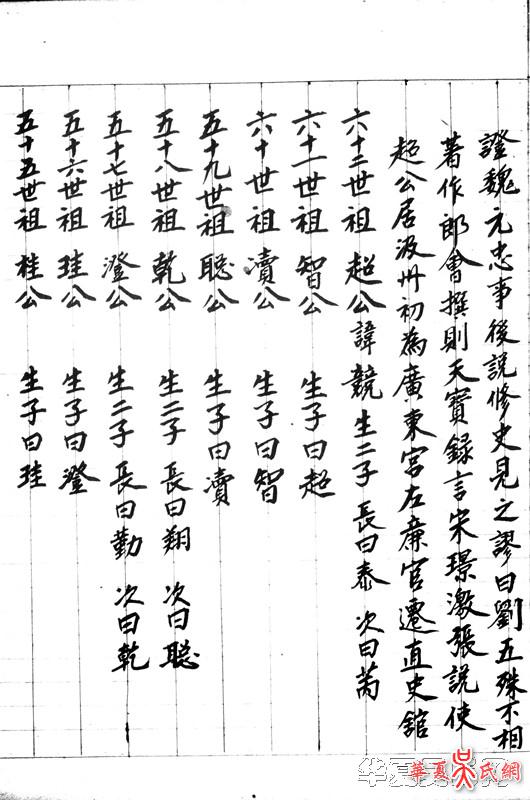 五十五世祖 桂公 生子曰珪
五十六世祖 珪公 生子曰澄
五十七世祖 澄公 生二子 長曰勤 次曰乾
五十八世祖 乾公 生二子 長曰翔 次曰聪
五十九世祖 聪公 生子曰瀆
六十世祖 瀆公 生子曰智
六十一世祖 智公 生子曰超
六十二世祖 超公諱競 生二子 長曰泰 次曰芮
超公居汲州初為廣東宮左庶官遷直史館
著作郎會撰則天實録言宋璟激張説使
證魏元忠事後説修史見之謬曰劉五殊不相
華夏吴氏網